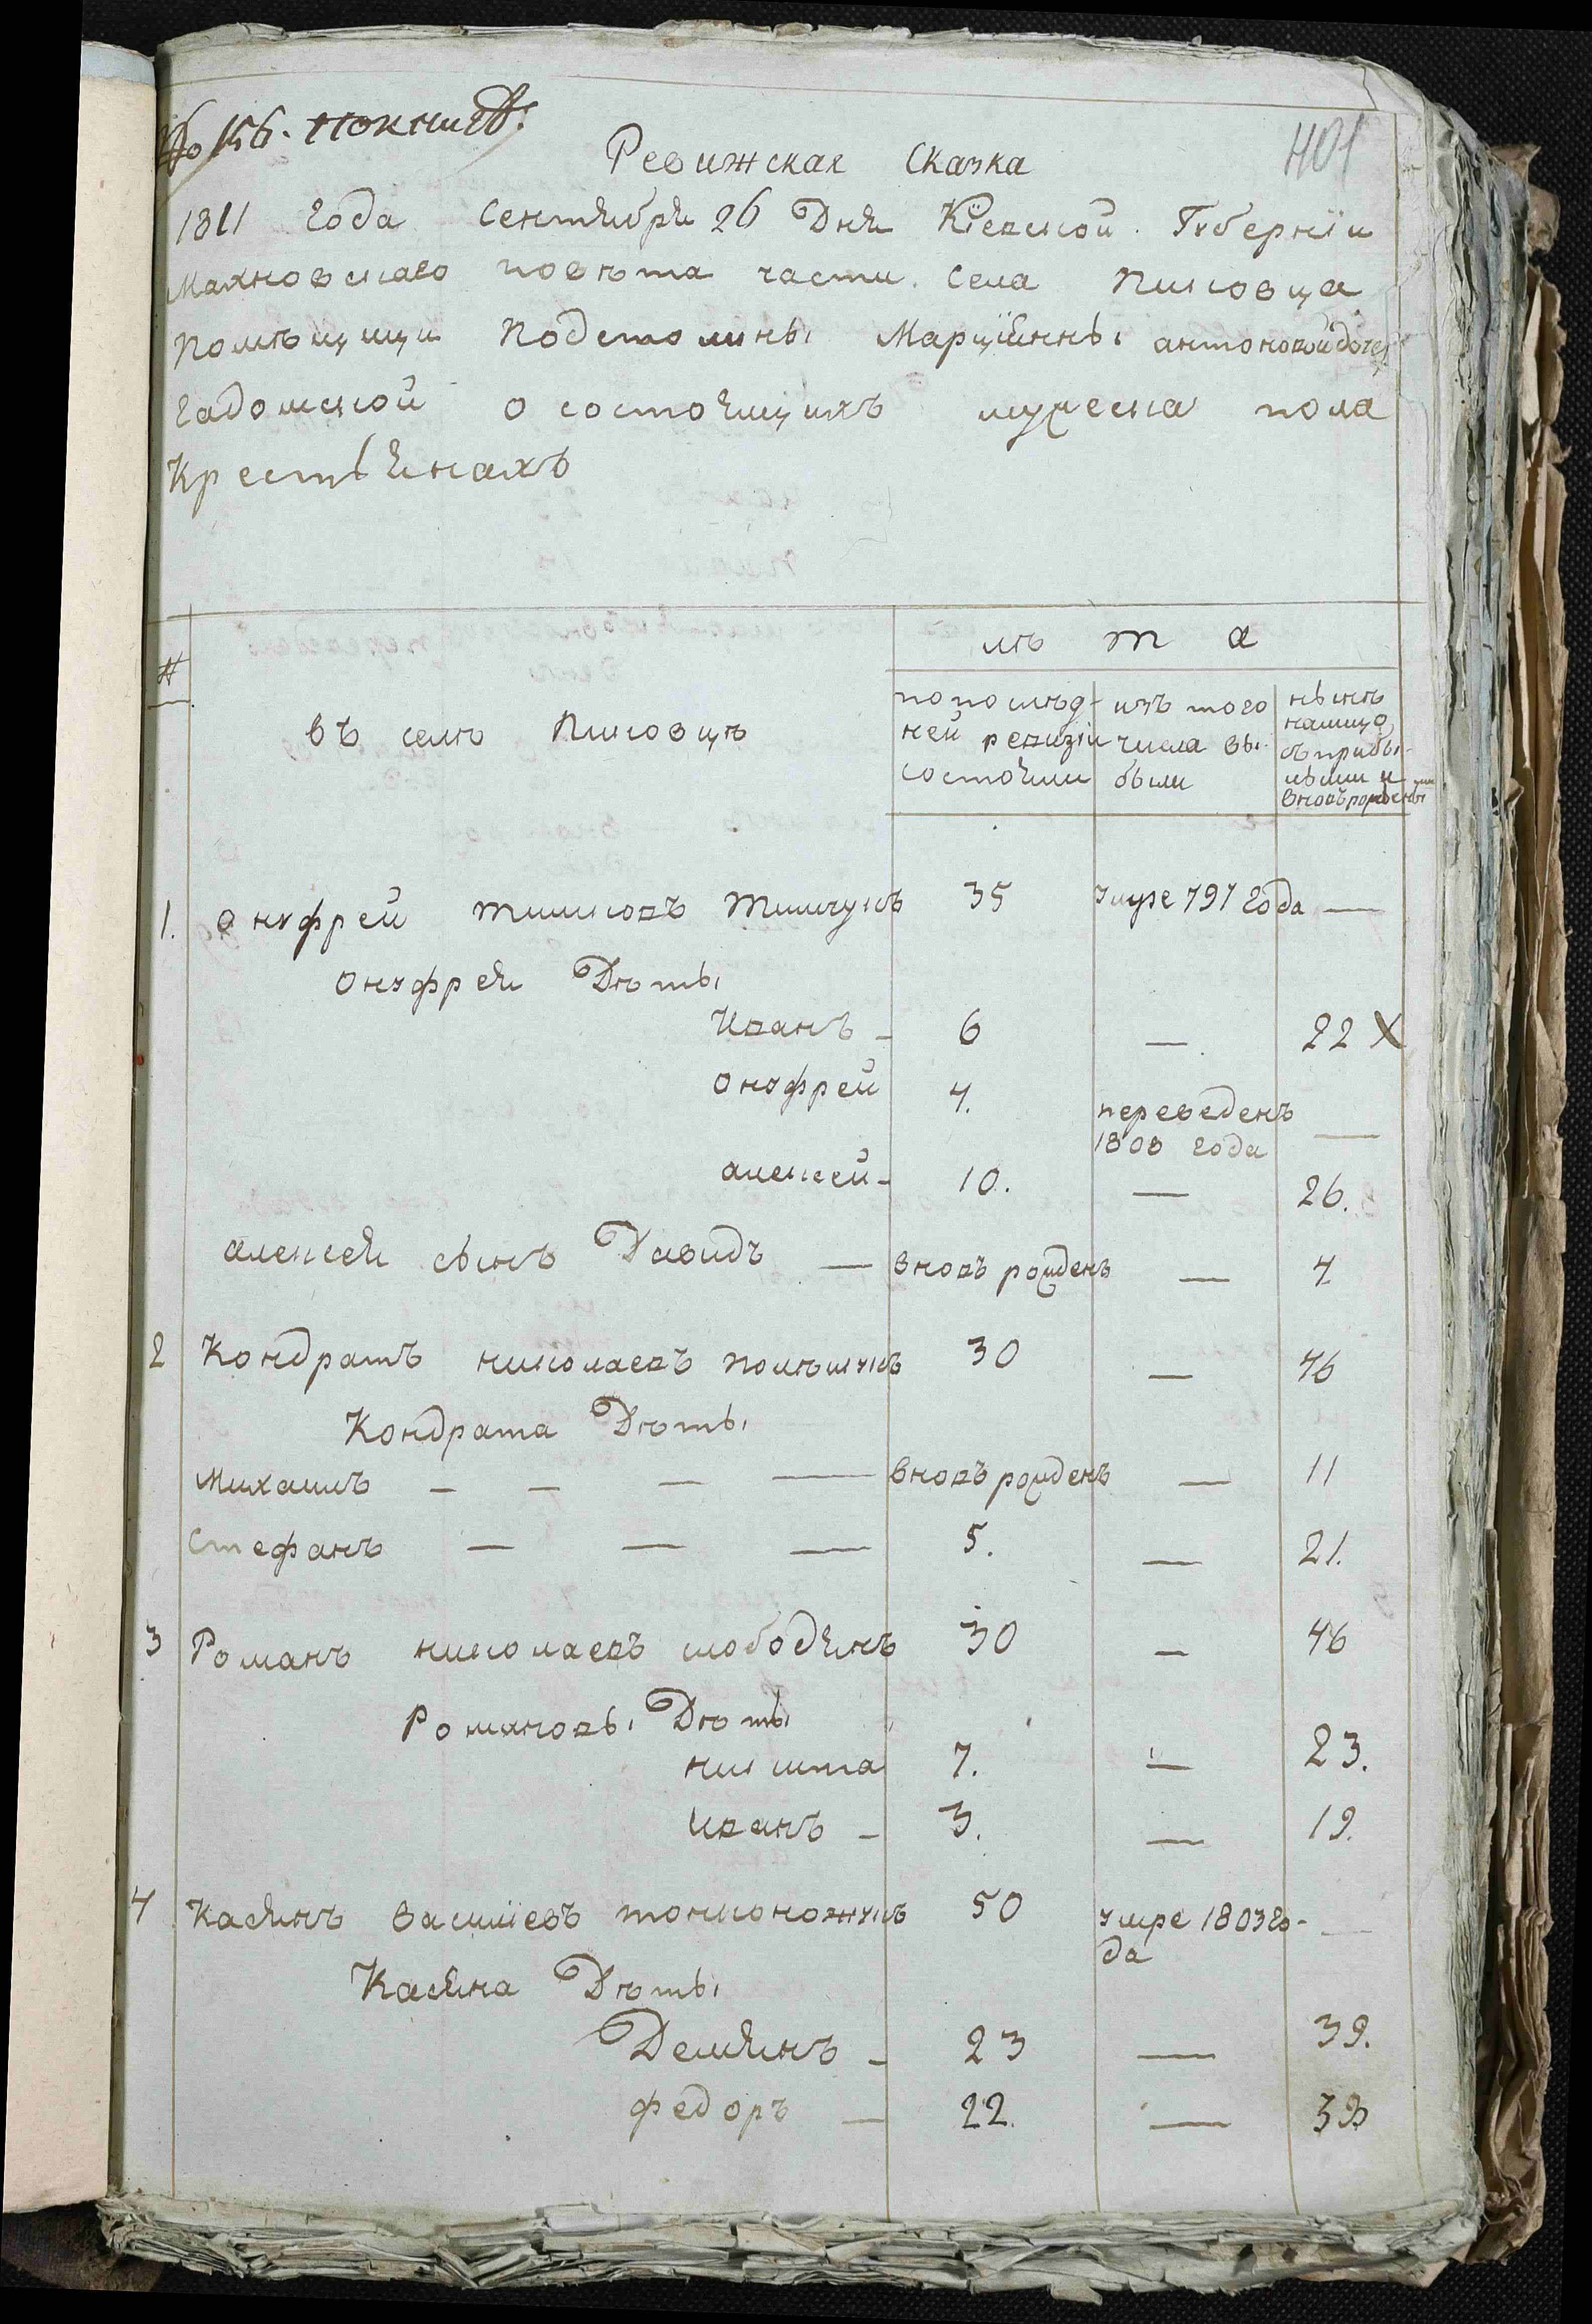 № 156. по книгѣ.
401
Ревижская Сказка
1811 года Сентября 26 Дня Кіевской Губерніи
Махновскаго повѣта части села Писовца
Помѣщици Подстолины Марціянны антоновой дочер
гадомской о состоящихъ мужеска пола
Крестьянахъ
#
въ селѣ Писовцѣ
лѣ т а
по послѣд-
ней ревизіи
состояли
изъ того
числа вы-
были
нынѣ
налицо
съ прибы-
лыми и
вновь рожденны
1. Онуфрей Тимковъ Тимчукъ 35 умре 797 года —
Онуфрея Дѣты
Иванъ - 6 — 22 X
Онуфрей 4. переведенъ
1808 года —
алексей - 10. — 26.
алексея сынъ Давидъ — вновъ рожденъ — 4
2 Кондратъ николаевъ 30 — 46
Кондрата Дѣты
Михаилъ — — — — вновъ рожденъ — 11
Стефанъ — — — 5. — 21.
3 Романъ николаевъ слободянъ 30 — 46
Романовы Дѣты
никита 7. — 23.
Иванъ - 3. — 19.
4 Касянъ Василіевъ тонконожукъ 50 умре 1803 го-
да —
Касяна Дѣты
Демянъ - 23 — 39.
федоръ — 22. —